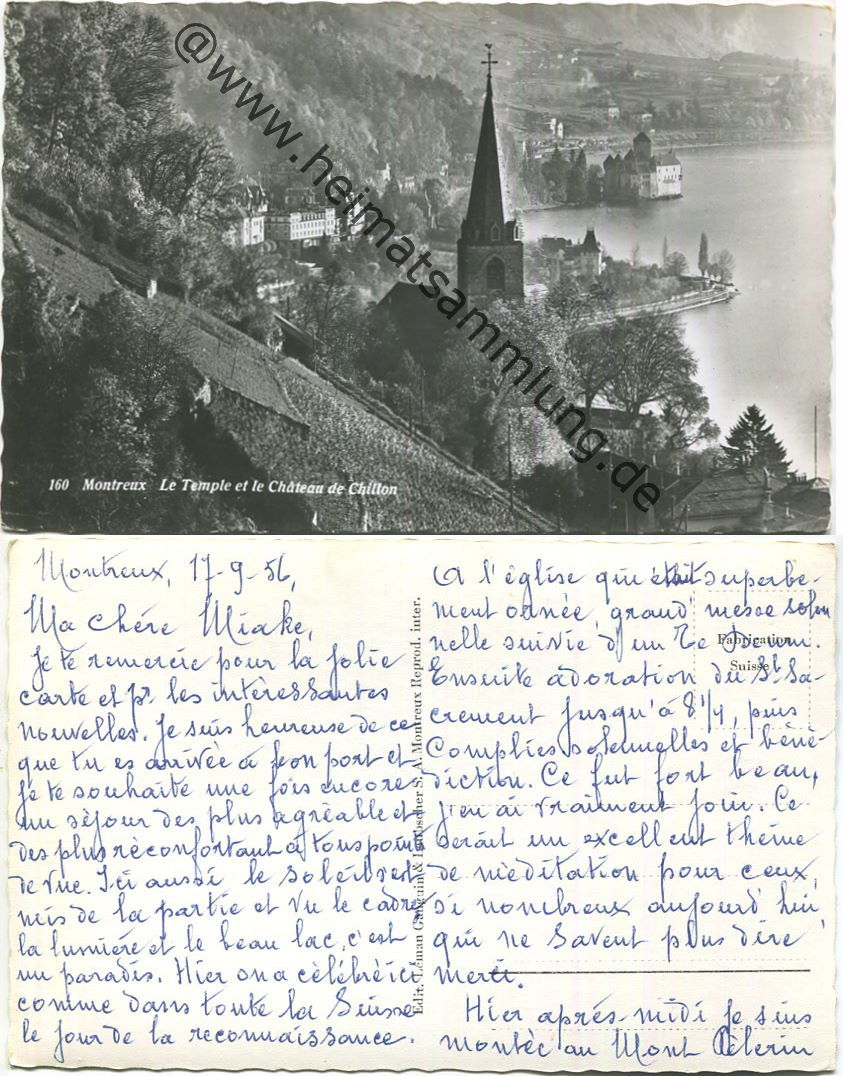 @www.heimatsammlung.de
160 Montreux Le Temple et le Château de Chillon
Montreux, 17-9-56,
Ma chére Miake,
Je te remercie pour la jolie
carte et pr. les intèressantes
nouvelles. Je suis heureuse de ce
que tu es arrivèe à bon port et
Je te souhaite une fois encore
un séjour des plus agrèable et
des plus rèconfortant à tous point
de vue. Ici aussi le soleil s'est
mis de la partie et vu le cadre
la lumière et le beau lac, c'est
un paradis. Hier on a cèlèbrè ici
comme dans toute la Suisse
le jour de la reconnaissance.
Edit. Léman Reprod. inter.
S. A. Montreux
Fabrication
Suisse
A l'église qui était superbe-
ment ornée, grand' messe solen
nelle suivie d'un Te Deum.
Ensuite adoration du St. Sa-
crement Jusqu'à 8 1/4, puis
Complies solennelles et bénè
diction. Ce fut fort beau,
j'en ai vraiment joui. Ce
serait un excellent thème
de mèditation pour ceux,
si nombreux aujourd'hui
qui ne savent plus dire
merci.
Hier après-midi je suis
montèe au Mont Pèlerin